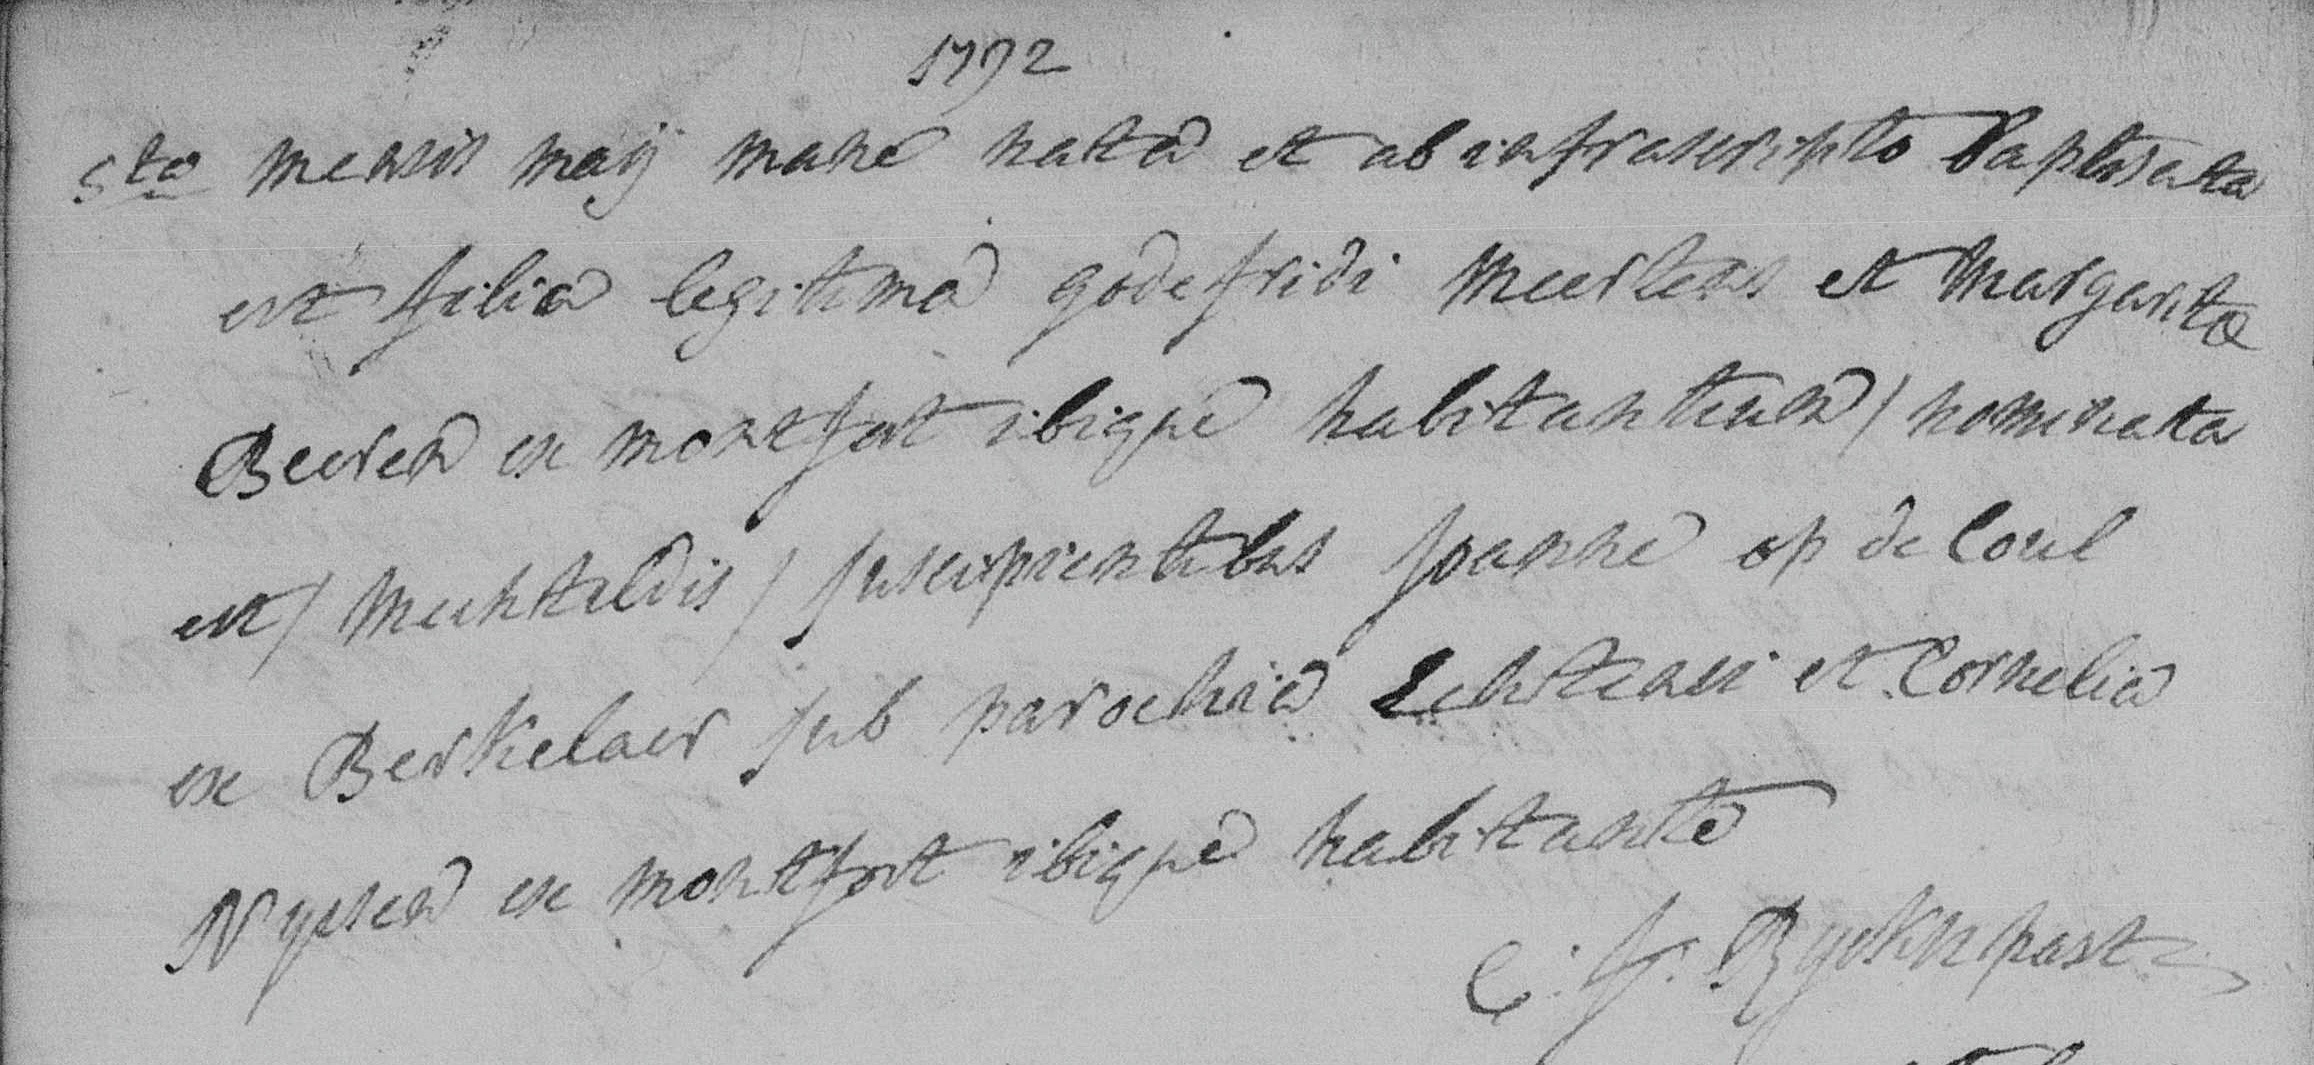 1792
5to mensis maÿ mane nata et ab infrascripto baptisata
est filia legitima godefridi Meerlens et Margarita
Beeren ex montfort ibique habitantium / nominata
est / Mechtildis / suscipientibus Joanne op de Coul
ex Berkelaer sub parochia Echtensi et Cornelia
Nyssen ex montfort ibique habitante
C: J: Ryckn past